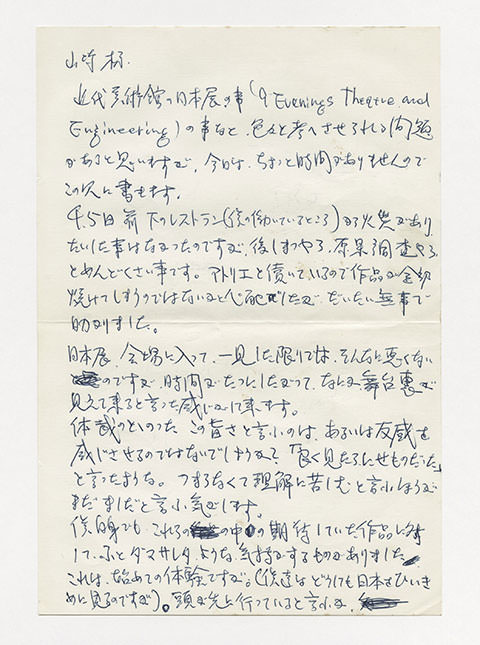 山崎様.
近代美術館の日本展の事(9 Evenings Theatre and
Engineering)の事など、色々と考へさせられる問題
があると思いますが、今日は、ちょっと時間がありませんので
この次に書きます。
4.5日前 下のレストラン(僕の働いているところ)から火災があり
たいした事はなかったのですが、後しまつやら、原果調査やら
とめんどくさい事です。アトリエと傍いているので作品が全部
焼けてしまうのではないかと心配でしたが、だいたい無事で
助かりました。
日本展、会場に入って、一見した限りでは、そんなに悪くない
のですが 時間がたつにしたがって、なにか舞台裏が
見えて来ると言った感じがして来ます。
体裁のといのった この皆さと言ふのは、あるいは反感を
感じさせるのではないでしょうか?「良く見たらにせものだった」
と言ったような。つまらなくて理解に苦しむと言ふほうが
まだましだと言ふ気がします。
僕自身でも、これらの の中の期待していた作品に対
して、ふとダマサレタような気持がするものがありました
これは、始めての体験ですが。(僕達はどうしても日本をひいき
めに見るのですが)。頭が先に行っていると言ふか、